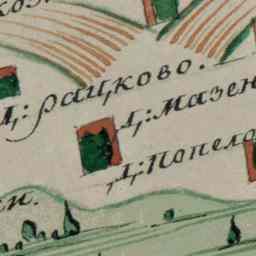 Д: рацково.
Д: Мазен
Д: Попело